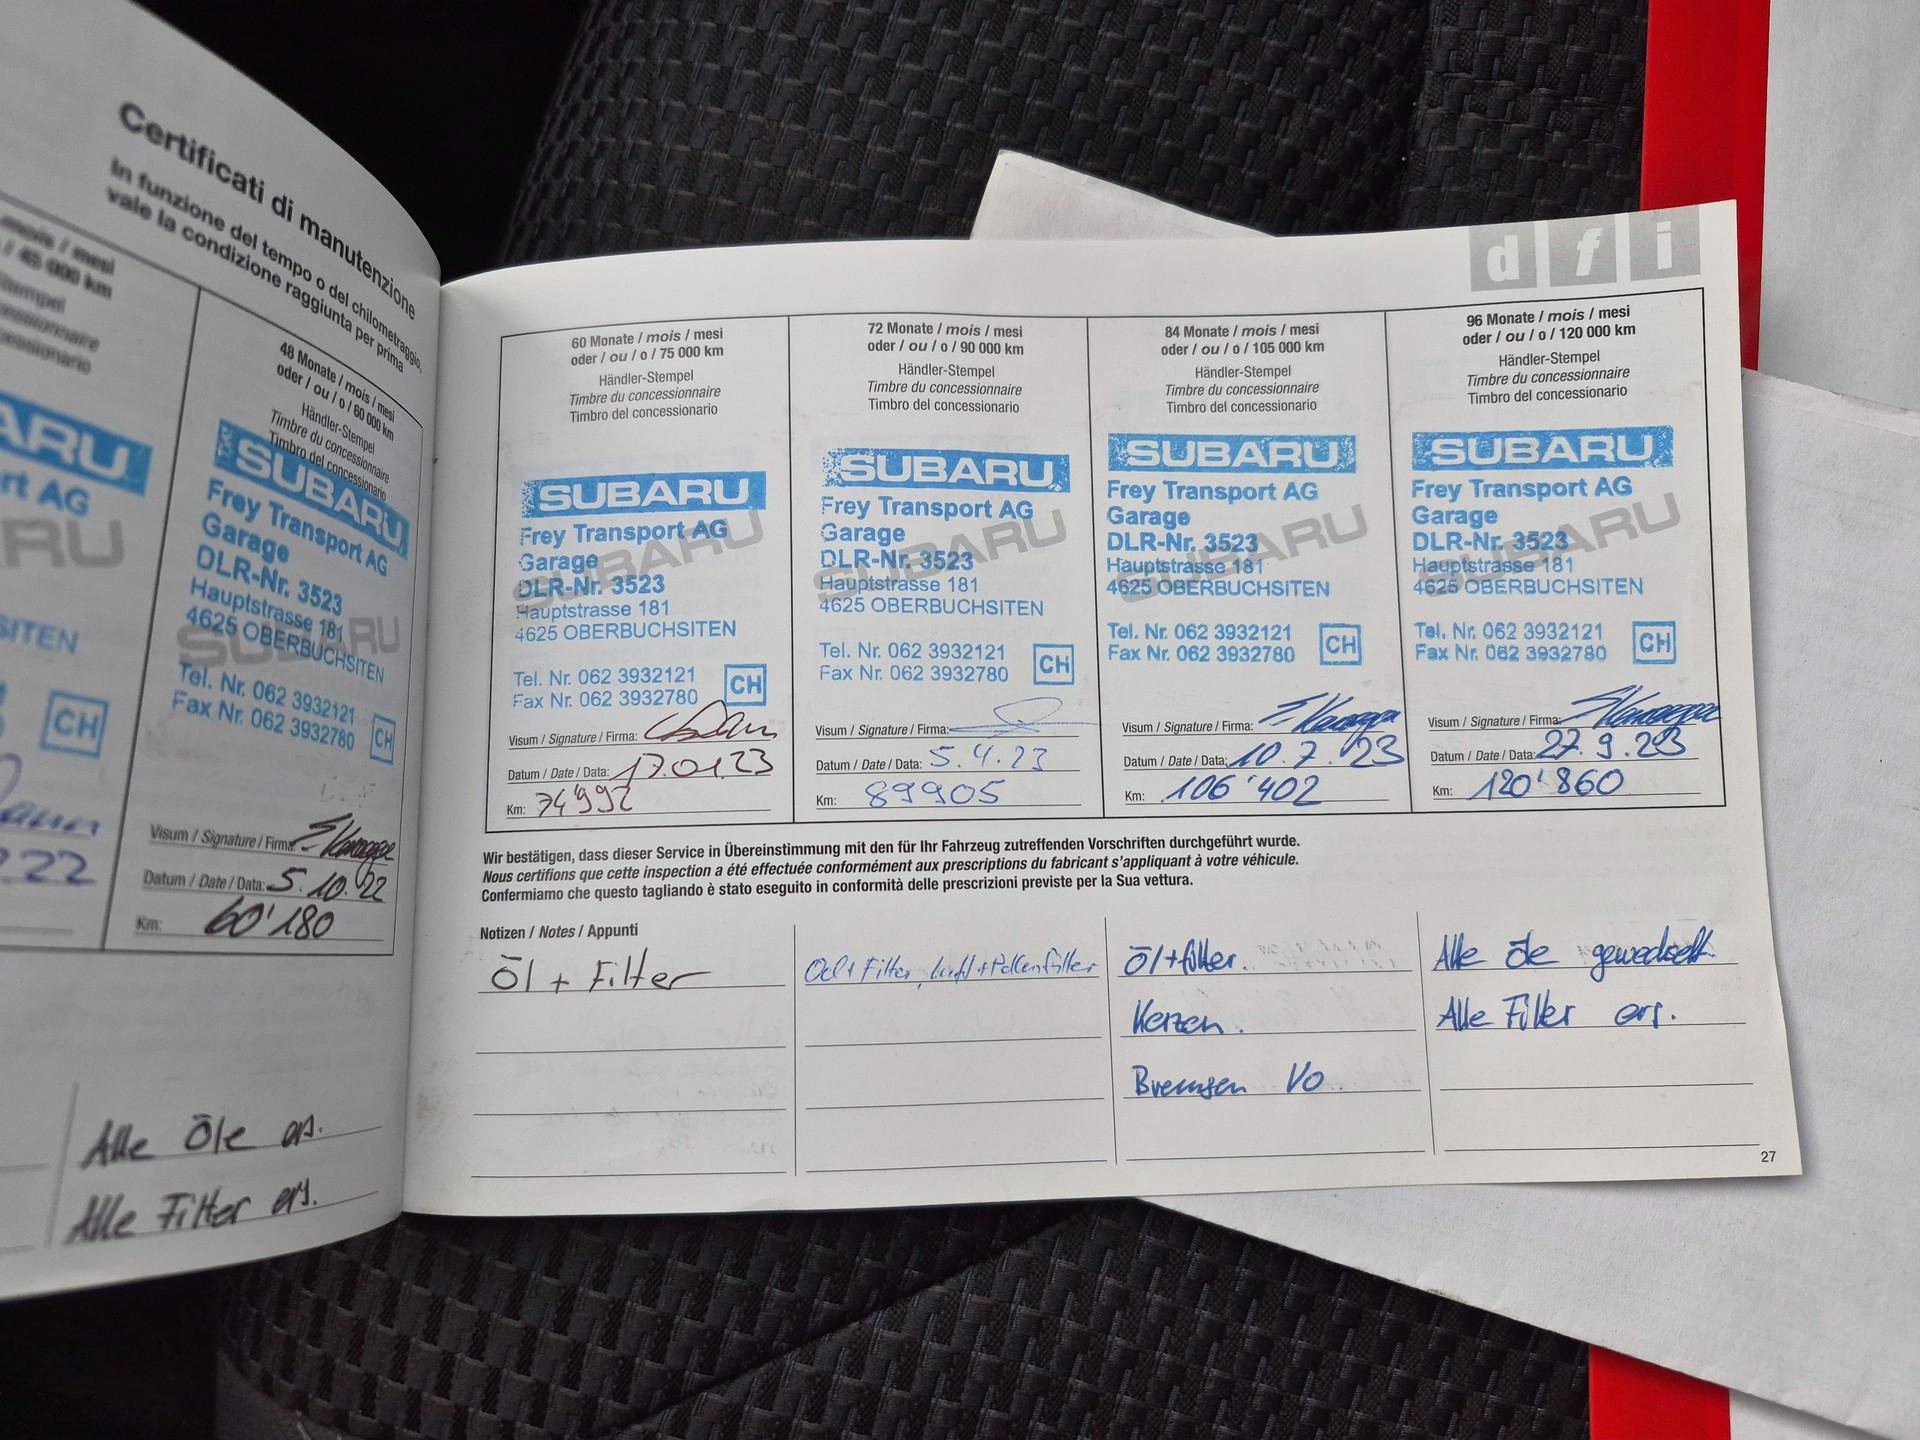 Certificati di manutenzione
In funzione del tempo o del chilometraggio,
vale la condizione raggiunta per prima
mois / mesi
/ 45 000 km
Stempel
concessionnaire
concessionario
SUBARU
Transport AG
SUBARU
CH
.22
48 Monate / mois / mesi
oder / ou / o / 60 000 km
Händler-Stempel
Timbre du concessionnaire
Timbro del concessionario
SUBARU
Frey Transport AG
Garage
DLR-Nr. 3523
Hauptstrasse 181
4625 OBERBUCHSITEN
SUBARU
Tel. Nr. 062 3932121
Fax Nr. 062 3932780
CH
Visum / Signature / Firma:
Datum / Date / Data: 5.10.22
Km: 60'180
Alle Öle ers.
Alle Filter ers.
d f i
60 Monate / mois / mesi
oder / ou / o / 75 000 km
Händler-Stempel
Timbre du concessionnaire
Timbro del concessionario
SUBARU
Frey Transport AG
Garage
SUBARU
DLR-Nr. 3523
Hauptstrasse 181
4625 OBERBUCHSITEN
Tel. Nr. 062 3932121
Fax Nr. 062 3932780
CH
Visum / Signature / Firma:
Datum / Date / Data: 17.01.23
Km: 74'992
72 Monate / mois / mesi
oder / ou / o / 90 000 km
Händler-Stempel
Timbre du concessionnaire
Timbro del concessionario
SUBARU
Frey Transport AG
Garage
SUBARU
DLR-Nr. 3523
Hauptstrasse 181
4625 OBERBUCHSITEN
Tel. Nr. 062 3932121
Fax Nr. 062 3932780
CH
Visum / Signature / Firma:
Datum / Date / Data: 5.4.23
Km: 89905
84 Monate / mois / mesi
oder / ou / o / 105 000 km
Händler-Stempel
Timbre du concessionnaire
Timbro del concessionario
SUBARU
Frey Transport AG
Garage
SUBARU
DLR-Nr. 3523
Hauptstrasse 181
4625 OBERBUCHSITEN
Tel. Nr. 062 3932121
Fax Nr. 062 3932780
CH
Visum / Signature / Firma:
Datum / Date / Data: 10.7.23
Km: 106'402
96 Monate / mois / mesi
oder / ou / o / 120 000 km
Händler-Stempel
Timbre du concessionnaire
Timbro del concessionario
SUBARU
Frey Transport AG
Garage
SUBARU
DLR-Nr. 3523
Hauptstrasse 181
4625 OBERBUCHSITEN
Tel. Nr. 062 3932121
Fax Nr. 062 3932780
CH
Visum / Signature / Firma:
Datum / Date / Data: 27.9.23
Km: 120'860
Wir bestätigen, dass dieser Service in Übereinstimmung mit den für Ihr Fahrzeug zutreffenden Vorschriften durchgeführt wurde.
Nous certifions que cette inspection a été effectuée conformément aux prescriptions du fabricant s'appliquant à votre véhicule.
Confermiamo che questo tagliando è stato eseguito in conformità delle prescrizioni previste per la Sua vettura.
Notizen / Notes / Appunti
Öl + Filter
Oel + Filter, Luft + Pollenfilter
Öl+filter.
Kerzen.
Bremsen Vo
Alle Öle gewechselt.
Alle Filter ers.
27